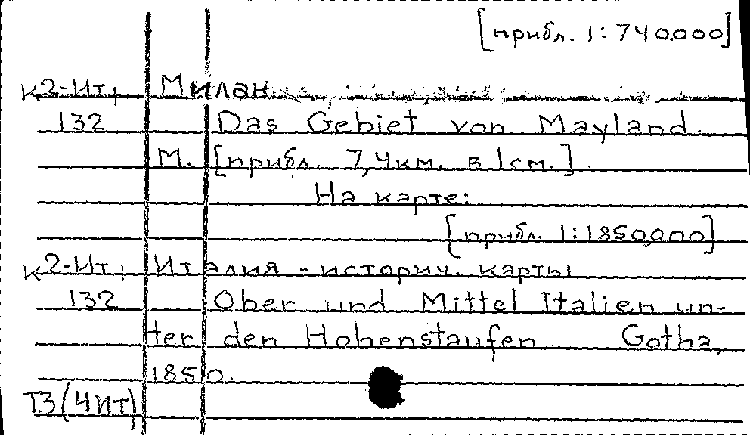 [прибл. 1:740000]
К2-Ит, Милан
132 Das Gebiet von Mayland.
М. [прибл. 7,4км. в 1см.].
На карте:
[прибл. 1:1850000]
К2-Ит, Италия - историч. карты
132 Ober und Mittel Italien un-
ter den Hohenstaufen Gotha,
1850.
Т3(4Ит)